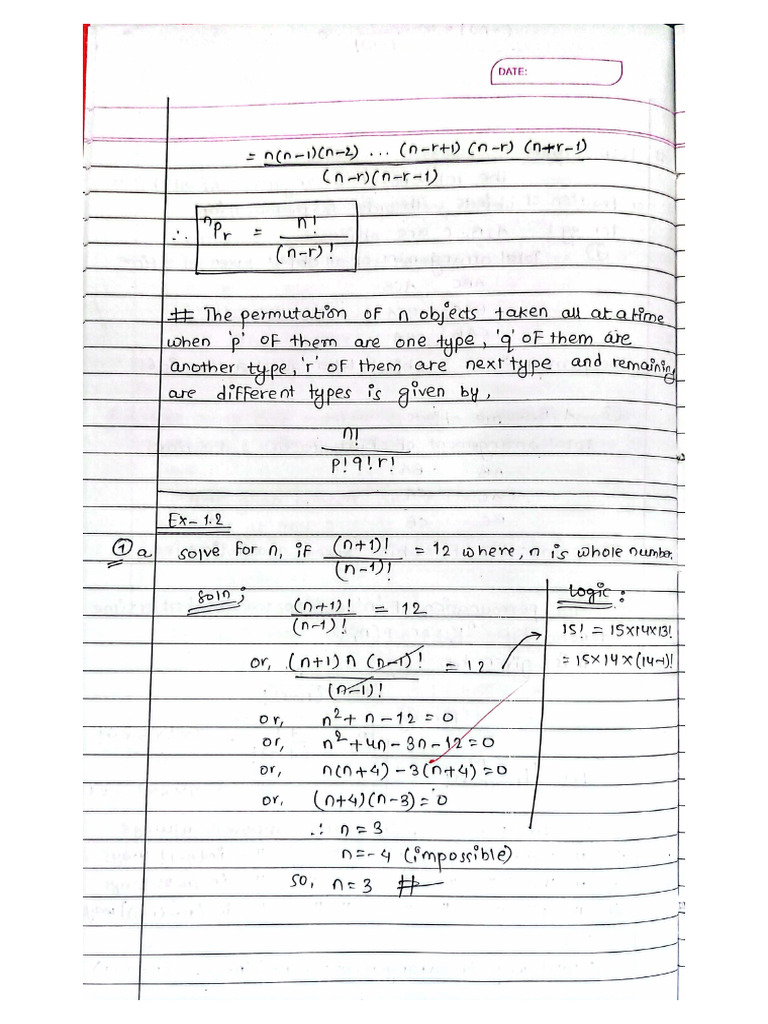 DATE:
= n(n-1)(n-2) ... (n-r+1) (n-r) (n+r-1)
(n-r)(n-r-1)
∴ ⁿPᵣ = n!
(n-r)!
# The permutation of n objects taken all at a time
when 'p' of them are one type, 'q' of them are
another type, 'r' of them are next type and remaining
are different types is given by,
n!
p!q!r!
Ex-1.2
① a solve for n, if (n+1)! / (n-1)! = 12 where, n is whole number.
soln:
(n+1)! / (n-1)! = 12
or, (n+1) n (n-1)! / (n-1)! = 12
or, n² + n - 12 = 0
or, n² + 4n - 3n - 12 = 0
or, n(n+4) - 3(n+4) = 0
or, (n+4)(n-3) = 0
∴ n = 3
n = -4 (impossible)
so, n = 3 #
Logic:
15! = 15×14×13!
= 15×14×(14-1)!